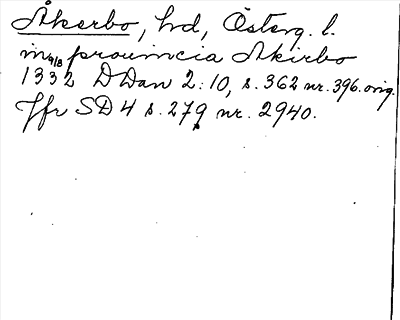 Åkerbo, hd, Österg. l.
in prouincia Akirbo
1332 DDan 2:10, s. 362 nr. 396. orig.
Jfr SD 4 s. 279 nr. 2940.